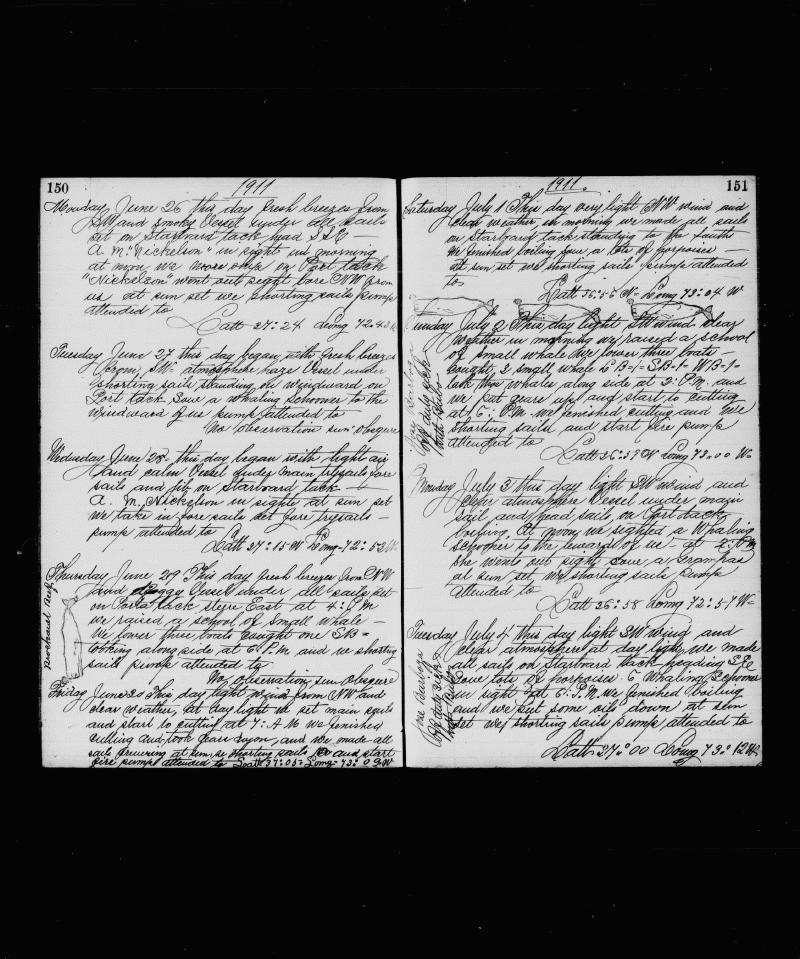 150
1911
Monday June 26 this day fresh breezes from
SW and smoky Vessel under all sails
set on Starboard tack head SSE
A. M. "Nickelson" in sight in morning
at noon we wore ship on Port tack
"Nickelson went out sight bore NW from
us at sun set we shorting sails pump
attended to
Latt 37:24 Long 72.4
Tuesday June 27 this day began with fresh breezes
from SW atmosphere haze Vessel under
shorting sails standing on windward on
Port tack. Sove a whaling schooner to the
windward of us pump attended to
No observation sun obscure
Wednesday June 28 this day began with light air
and calm Vessel under main trysails fore
sails and jib on Starboard tack
A. M. Nickelson in sight at sun set
we take in fore sails set fore trysails
pump attended to
Latt 37:15 N Long 72:52 W
Thursday June 29 This day fresh breezes from NW
and foggy Vessel under all sails set
on Port tack steere East at 4: P M
we raised a school of Small whale
We lower three boats caught one SB=
tooking along side at 6 P.M and we shorting
sail pump attended to
No observation sun obscure
Friday June 30 This day light wind from NW and
clear weather, at day light we set main sails
and start to cutting at 7: A M We fenished
cutting and took gear upon, and we made all
sails at sun se shorting sails and start
fire pump attended to Latt 37:05 Long 73:09 W
151
1911.
Saturday July 1 This day very light NW wind and
clear weather, in morning we made all sails
on Starboard tack standing to the South
We finished boiling sove a lots of porpoises
at sun set we shorting sails pump attended
to
Latt 36:56 N Long 73:04 W
Sunday July 2 This day light SW wind clear
weather in morning we raised a school
of small whale We lower three boats
caught 2 small whale LB-1- SB-1- WB-1-
took the whales along side at 2: P.M. and
we put gears up and start to cutting
at 6: P.M. we fenished cutting and we
shorting sails and start fire pump
attended to
Latt 36:57 N Long 73.00 W
Monday July 3 this day light SW wind and
clear atmosphere Vessel under main
sail and head sail, on Port tack
boiling. At noon we sighted a Whaling
schooner to the leeward of us at P.M
she went out sight sove a Grampas
at sun set we shorting sails pump
attended to
Latt 36:58 Long 72:57 W
Jose Barboza
off duty sick
Tuesday July 4 this day light SW wind and
clear atmosphere at day light we made
all sails on Starboard tack heading SSE
sove lots of porpoises 6 Whaling Schooner
in sight at 6: P.M. we fenished boiling
and we put some oils down at sun
set we shorting sails pump attended to
Latt 37:00 Long 73:12 W